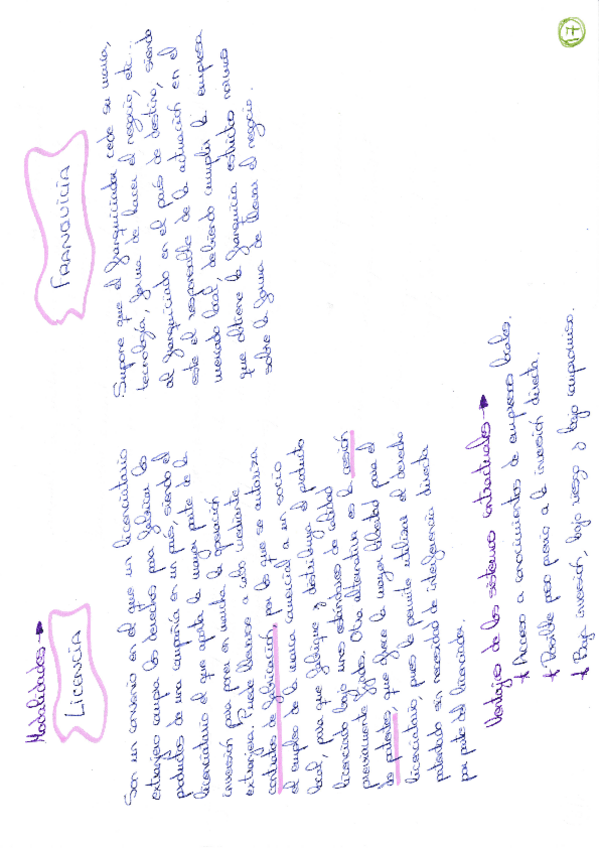 Modalidades →
LICENCIA
Son un convenio en el que un licenciatario
extranjero compra los derechos para fabricar los
productos de una compañía en un país, siendo el
licenciatario el que aporta la mayor parte de la
inversión para poner en marcha la operación
extranjera. Puede llevarse a cabo mediante
contratos de fabricación, por los que se autoriza
el empleo de la marca comercial a un socio
local, para que fabrique y distribuya el producto
licenciado bajo unos estándares de calidad
previamente fijados. Otra alternativa es la cesión
de patentes, que ofrece la mayor libertad para el
licenciatario, pues le permite utilizar el derecho
patentado sin necesidad de interferencia directa
por parte del licenciador.
FRANQUICIA
Supone que el franquiciador cede su marca,
tecnología, forma de hacer el negocio, etc...
al franquiciado en el país de destino, siendo
este el responsable de la actuación en el
mercado local, debiendo cumplir la empresa
que obtiene la franquicia estrictas normas
sobre la forma de llevar el negocio.
Ventajas de los sistemas contractuales →
* Acceso a conocimientos de empresas locales.
* Posible paso previo a la inversión directa.
* Baja inversión, bajo riesgo y bajo compromiso.
7